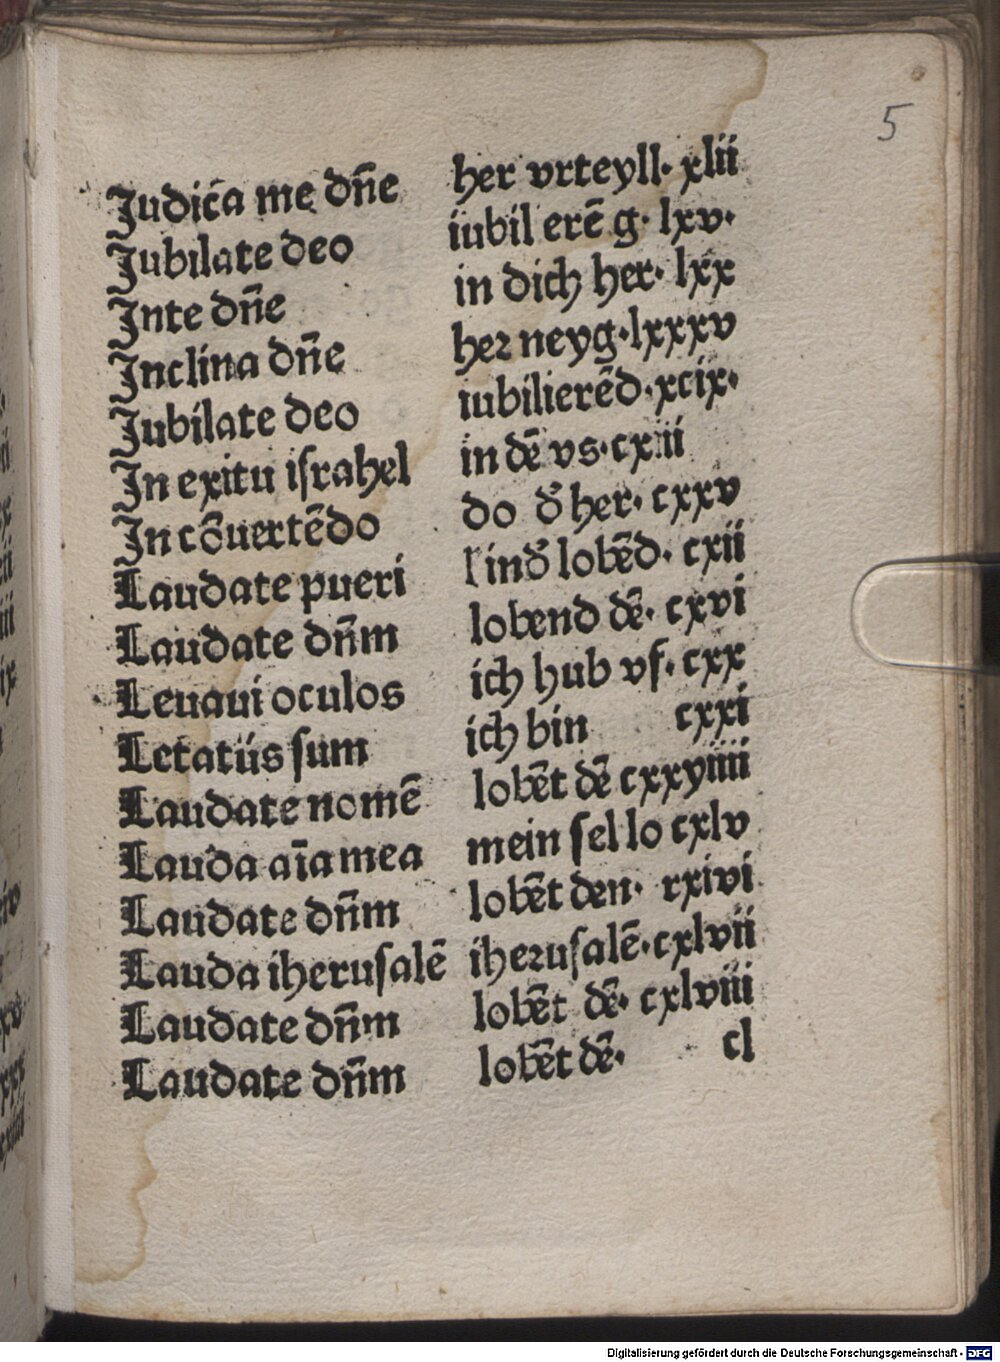 5
Judic̄a me dn̄e her vrteyll· xlii
Jubilate deo iubil erē g· lxv·
Jnte dn̄e in dich her· lxx
Jnclina dn̄e her neyg·lxxxv
Jubilate deo iubilierēd·xcix·
Jn exitu iſrahel in dē vs·cxiii
Jn cōuertēdo do d᷑ her· cxxv
Laudate pueri ind᷑ lobēd· cxii
Laudate dn̄m lobend dē· cxvi
Leuaui oculos ich hub vf· cxx
Letatus ſum ich bin cxxi
Laudate nomē lobēt dē cxxyiiii
Lauda aīa mea mein ſel lo cxlv
Laudate dn̄m lobēt den· cxlvi
Lauda iheruſalē iheruſalē·cxlvii
Laudate dn̄m lobēt dē· cxlviii
Laudate dn̄m lobēt dē· cl
Digitalisierung gefördert durch die Deutsche Forschungsgemeinschaft - DFG